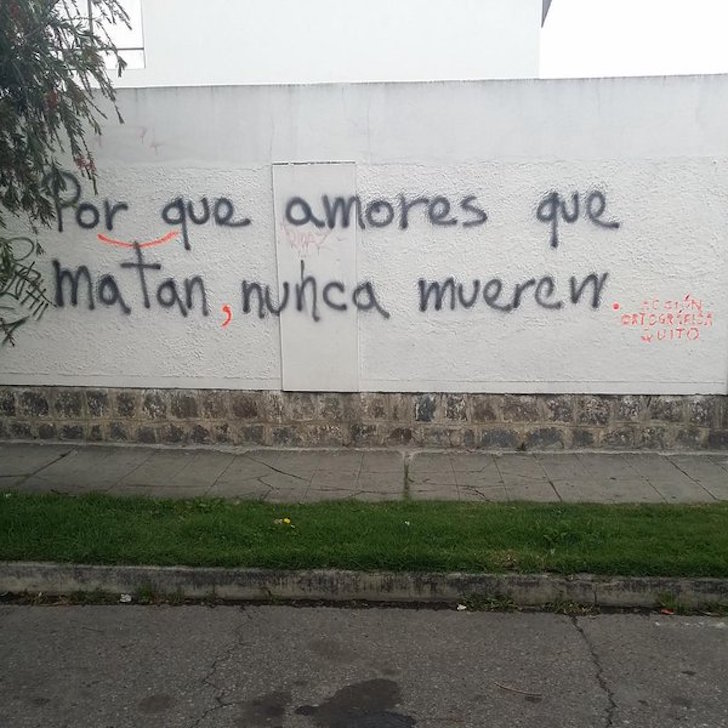 Por que amores que
matan, nunca mueren.
ACCIÓN
ORTOGRÁFICA
QUITO